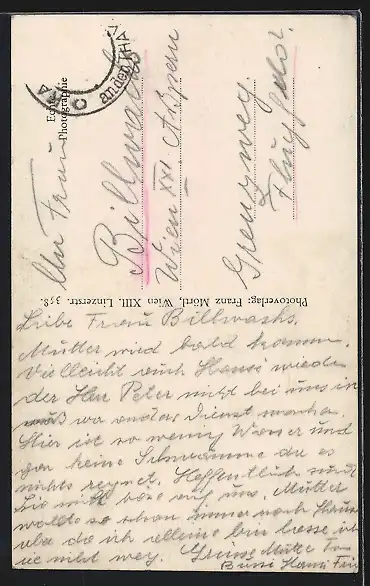 Echte
Photographie
an der Thaya
An Frau
Billwachs
Wien XXI Aspern
Grenzweg.
Flugfeld.
Photoverlag: Franz Mörtl, Wien XIII. Linzerstr. 358.
Liebe Frau Billwachs.
Mutter wird bald kommen.
Vielleicht auch Hansi wieder
der Herr Peter nicht bei uns ist
muß wo anders Dienst machen.
Hier ist so wenig Wasser und
gar keine Schwamme da es
nichts regnet. Hoffentlich sind
Sie nicht böse auf uns. Mutter
wollte so schon immer nach Hause
aber da ich alleine bin lasse ich
sie nicht weg. Grüsse Mutter
Bussi Hansi